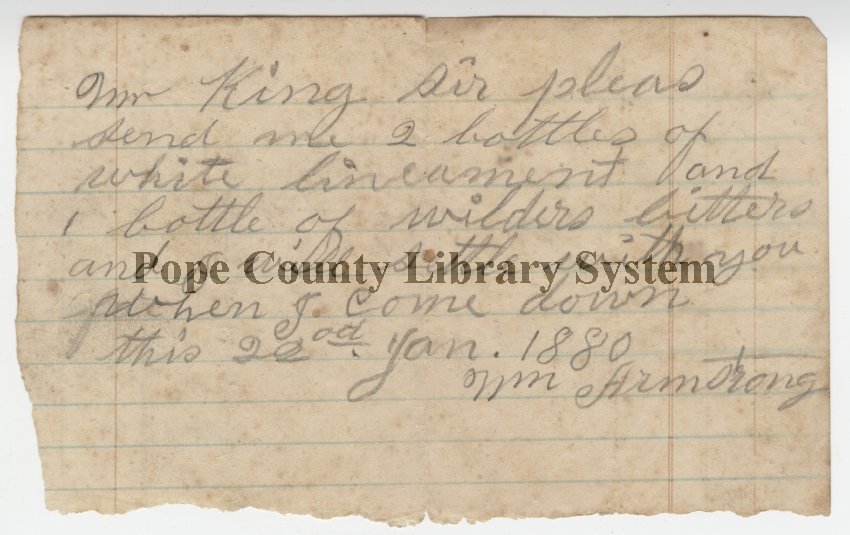 Mr King sir pleas
send me 2 bottles of
white lineament and
1 bottle of wilders bitters
and I will settle with you
Pope County Library System
when I come down
this 22nd. Jan. 1880
Wm Armstrong